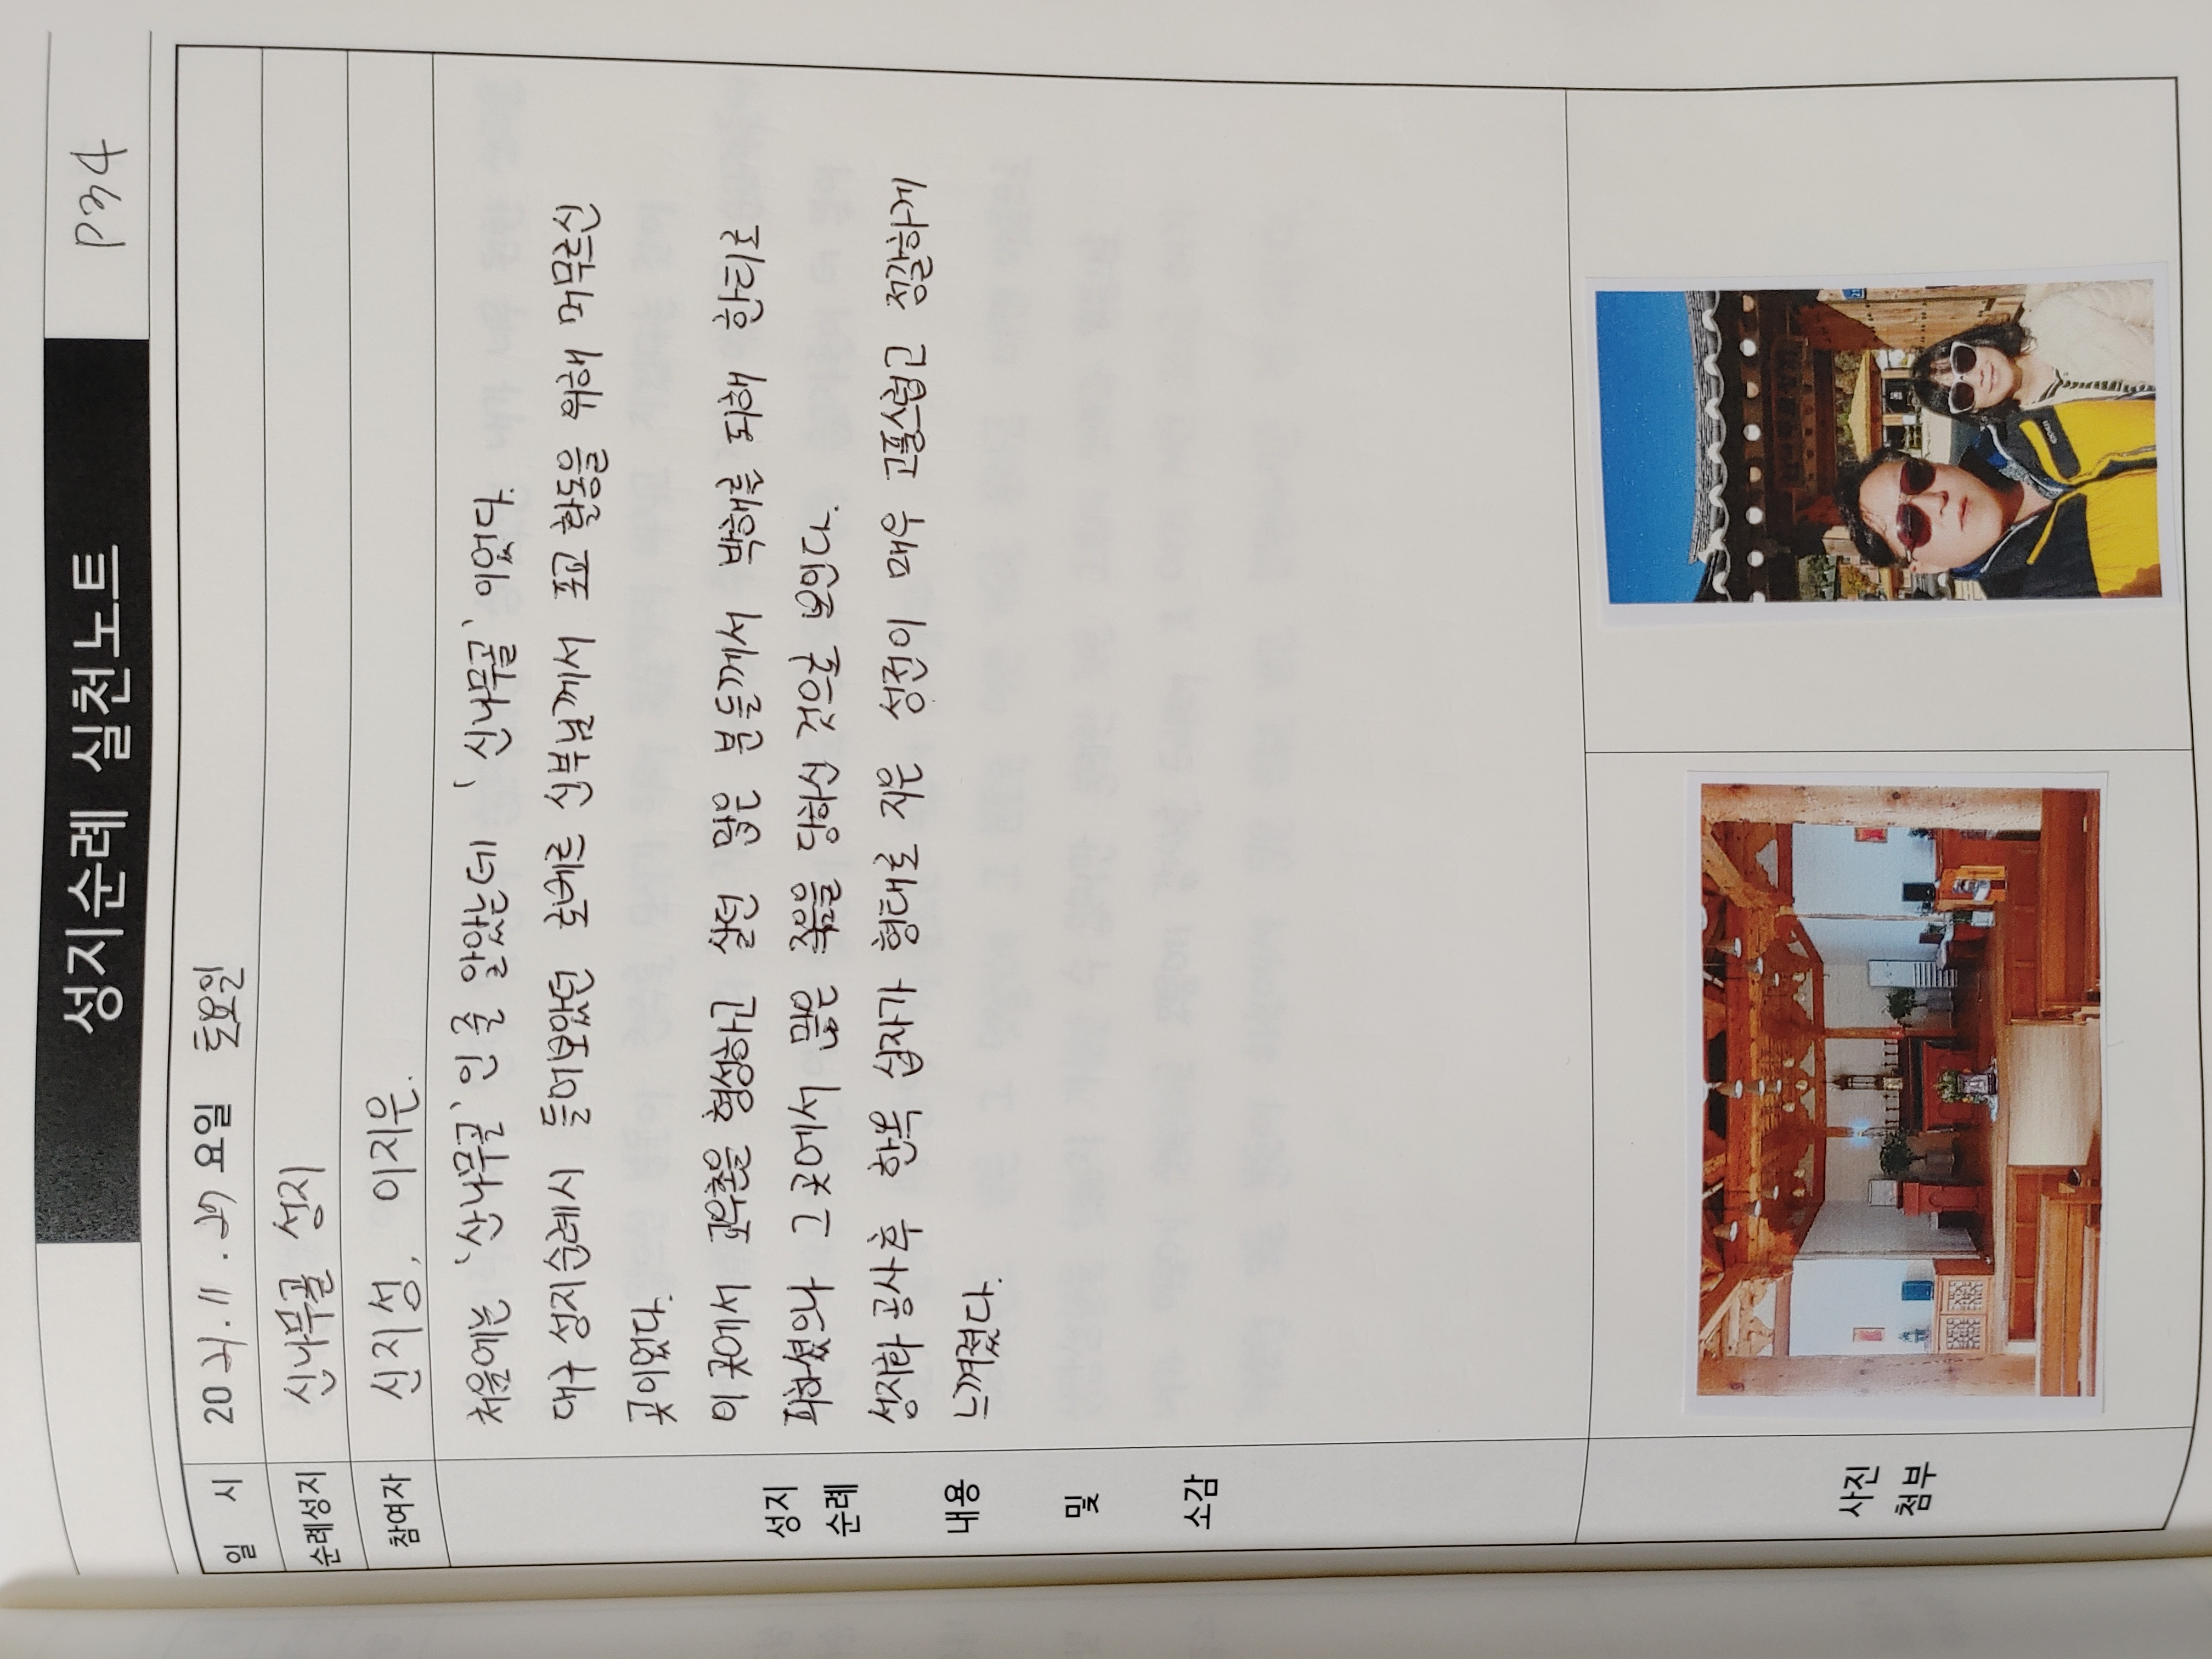 성지순례 실천노트
P34
일 시 2021. 11. 27 요일 토요일
순례성지 신나무골 성지
참여자 신지성, 이지은.
성지 순례 내용 및 소감
처음에는 '산나무골' 인줄 알았는데 '신나무골' 이었다.
대구 성지순례시 들어보았던 로베르 신부님께서 포교 활동을 위해 머무르신
곳이었다.
이 곳에서 교우촌을 형성하고 살던 많은 분들께서 박해를 피해 한티로
피하셨으나 그 곳에서 많은 죽음을 당하신 것으로 보인다.
성지화 공사후 한옥 십자가 형태로 지은 성전이 매우 고풍스럽고 정갈하게
느껴졌다.
사진
첨부